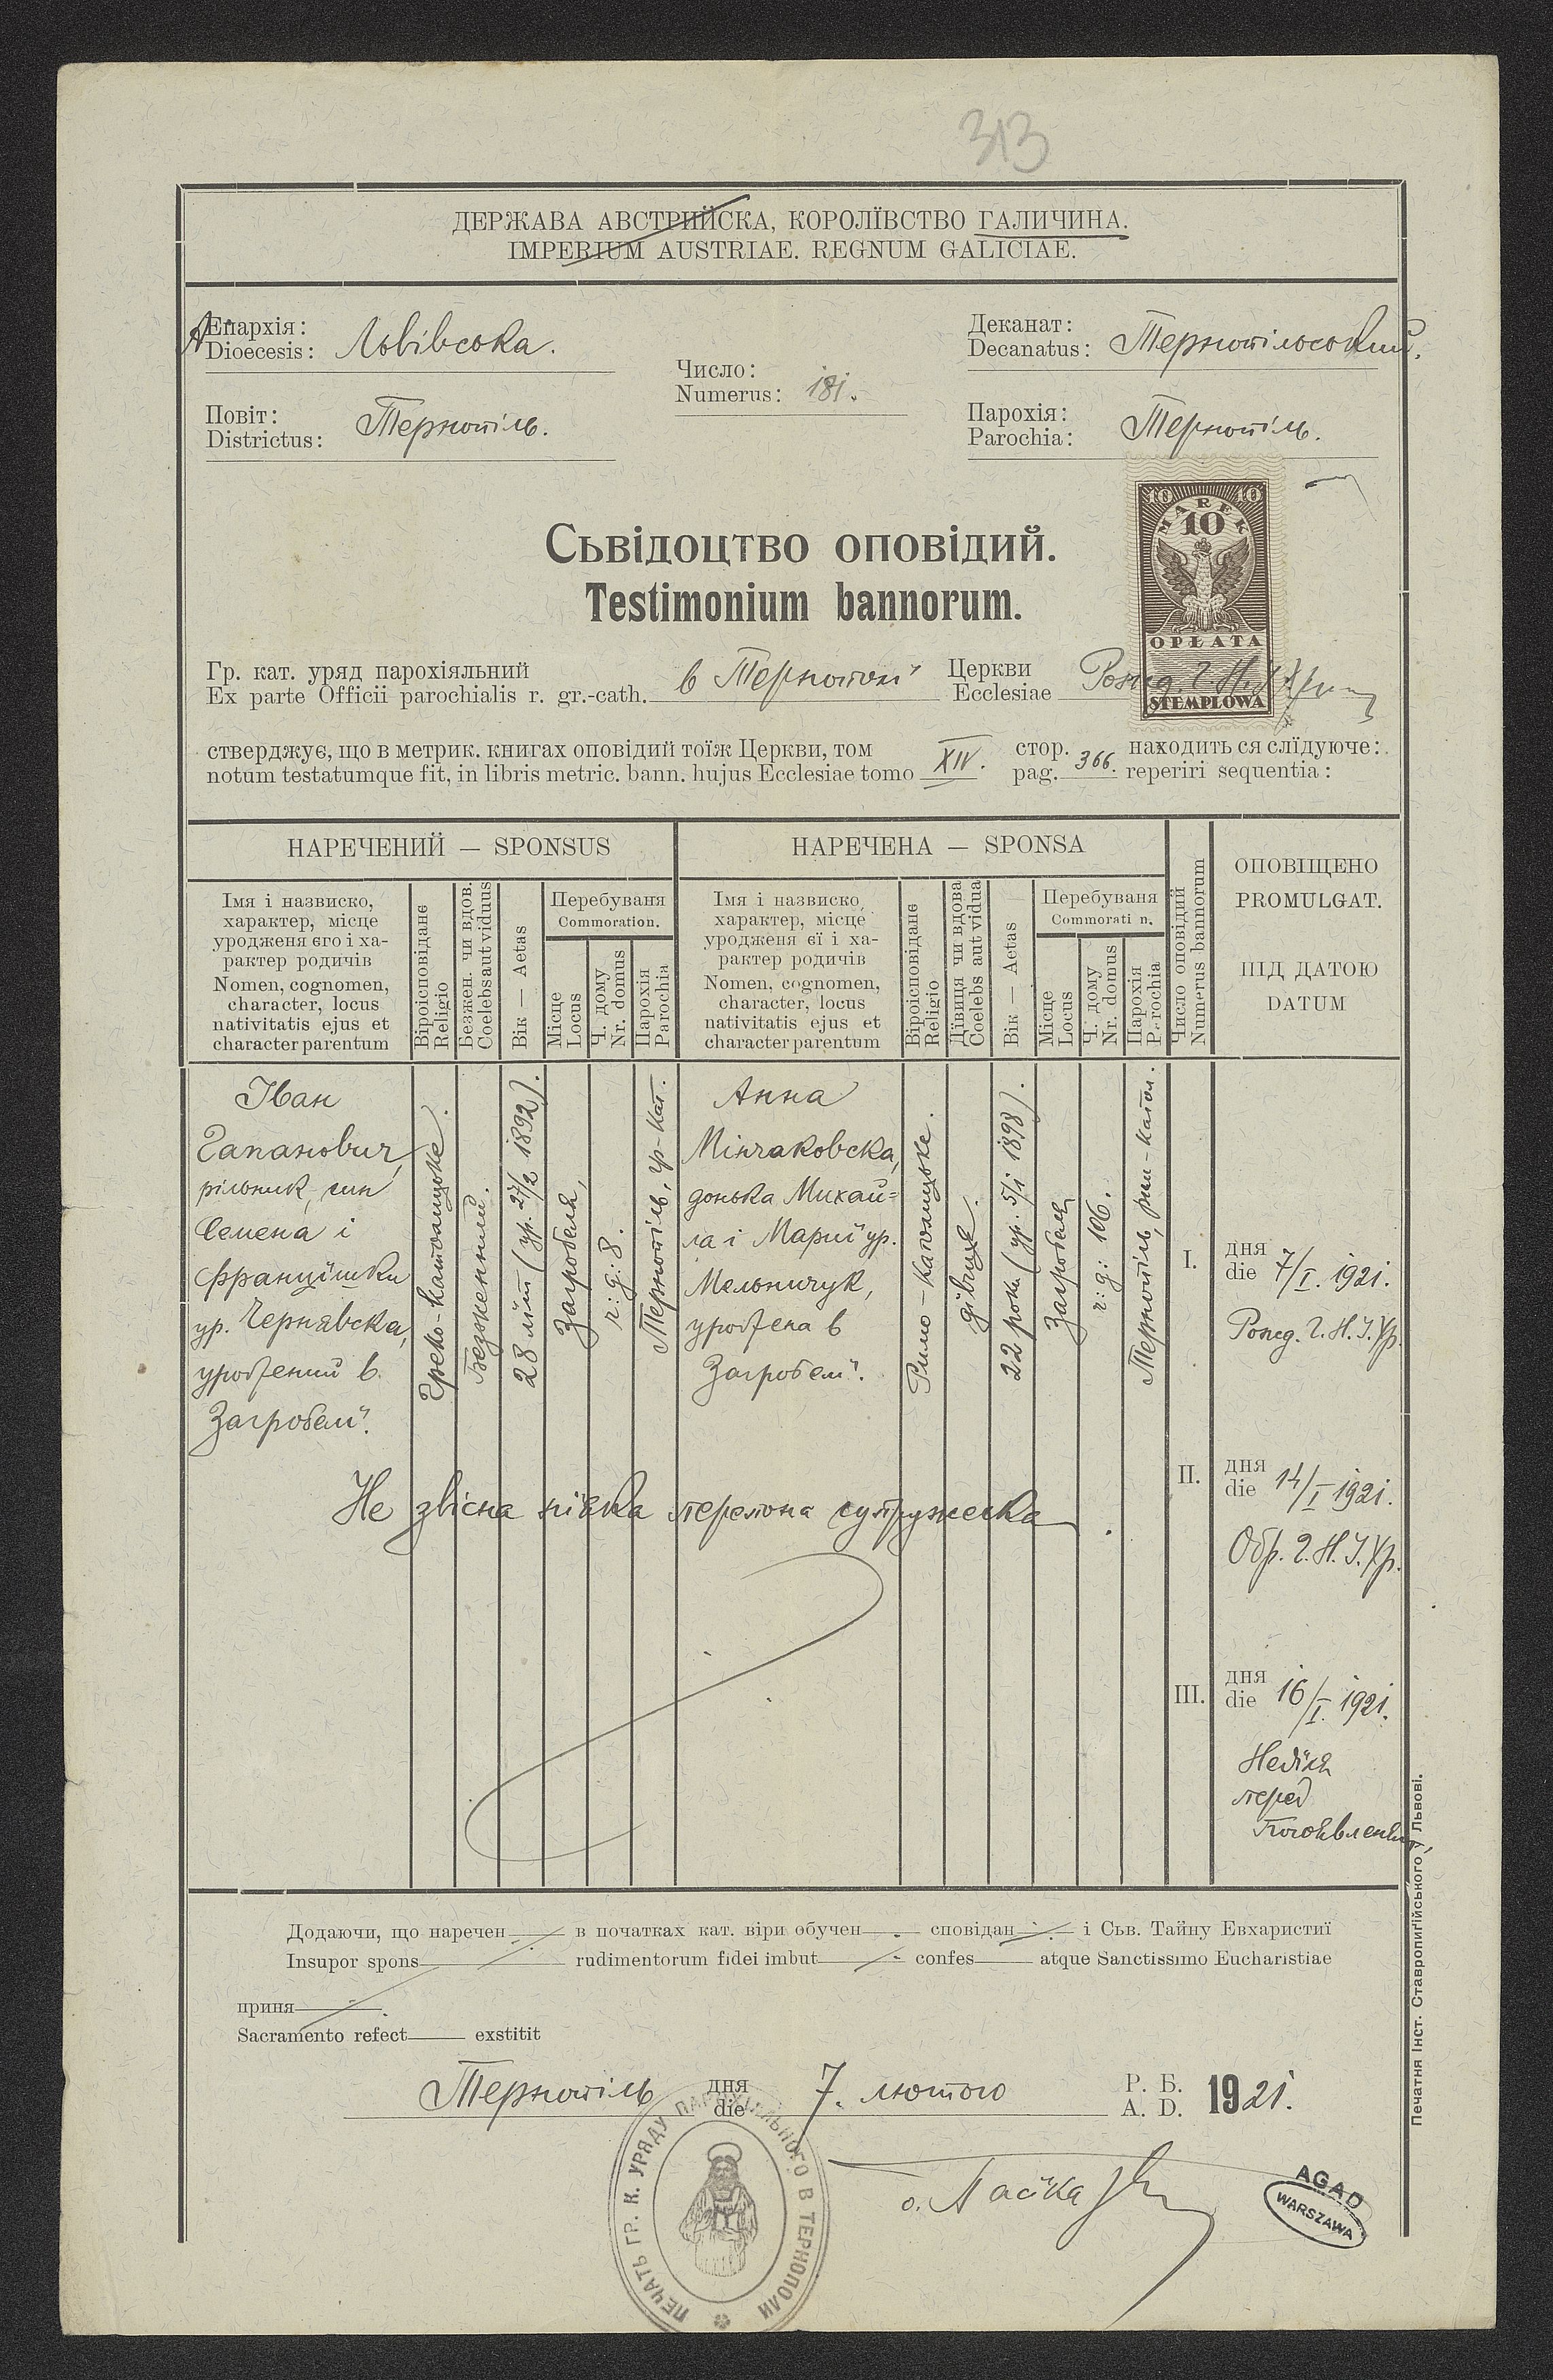 313
ДЕРЖАВА АВСТРИЙСКА, КОРОЛЇВСТВО ГАЛИЧИНА.
IMPERIUM AUSTRIAE. REGNUM GALICIAE.
Епархія:
Dioecesis: Львівска.
Деканат:
Decanatus: Тернопільский.
Число:
Numerus: 181.
Повіт:
Districtus: Тернопіль.
Парохія:
Parochia: Тернопіль.
10 10
MAREK
10
OPŁATA
STEMPLOWA
Сьвідоцтво оповідий.
Testimonium bannorum.
Гр. кат. уряд парохіяльний в Тернополї Церкви
Ex parte Officii parochialis r. gr.-cath. Ecclesiae Рожд. Г. Н. І. Хр.
стверджує, що в метрик. книгах оповідий тоїж Церкви, том XIV. стор. 366. находить ся слїдуюче:
notum testatumque fit, in libris metric. bann. hujus Ecclesiae tomo pag. reperiri sequentia:
НАРЕЧЕНИЙ — SPONSUS
НАРЕЧЕНА — SPONSA
Імя і назвиско,
характер, місце
уродженя єго і ха-
рактер родичів
Nomen, cognomen,
character, locus
nativitatis ejus et
character parentum
Віроісповіданє
Religio
Безжен. чи вдов.
Coelebs aut viduus
Вік — Aetas
Перебуваня
Commoration.
Місце
Locus
Ч. дому
Nr. domus
Парохія
Parochia
Імя і назвиско,
характер, місце
уродженя єї і ха-
рактер родичів
Nomen, cognomen,
character, locus
nativitatis ejus et
character parentum
Віроісповіданє
Religio
Дївиця чи вдова
Coelebs aut vidua
Вік — Aetas
Перебуваня
Commorati n.
Місце
Locus
Ч. дому
Nr. domus
Парохія
Parochia
Число оповідий
Numerus bannorum
ОПОВІЩЕНО
PROMULGAT.
ПІД ДАТОЮ
DATUM
Іван
Гапанович,
рільник, син
Семена і
Францїшки
ур. Чернявска,
уроджений в
Загробели.
Греко-католицьке.
Безженний.
28 літ (ур. 27/2 1892).
Загробеля,
ч: д: 8.
Тернопіль, гр-кат.
Анна
Мінчаковска,
донька Михай=
ла і Марії ур.
Мельничук,
уроджена в
Загробели.
Римо-католицьке.
дівиця.
22 роки (ур. 5/1 1898).
Загробеля
ч: д: 106.
Тернопіль, рим-катол.
I. дня
die 7/I. 1921.
Рожд. Г. Н. І. Хр.
II. дня
die 14/I 1921.
Обр. Г. Н. І. Хр.
III. дня
die 16/I. 1921.
Недїля
перед
Богоявленєм,
Не звісна ніяка перепона супружеска.
Додаючи, що наречен в початках кат. віри обучен сповідан і Сьв. Тайну Евхаристиї
Insupor spons rudimentorum fidei imbut confes atque Sanctissimo Eucharistiae
приня
Sacramento refect exstitit
Тернопіль дня 7. лютого Р. Б. 1921.
die A. D.
ПЕЧАТЬ ГР. К. УРЯДУ ПАРОХІЯЛЬНОГО В ТЕРНОПОЛИ
AGAD
WARSZAWA
Печатня Інст. Ставропиґійського у Львові.